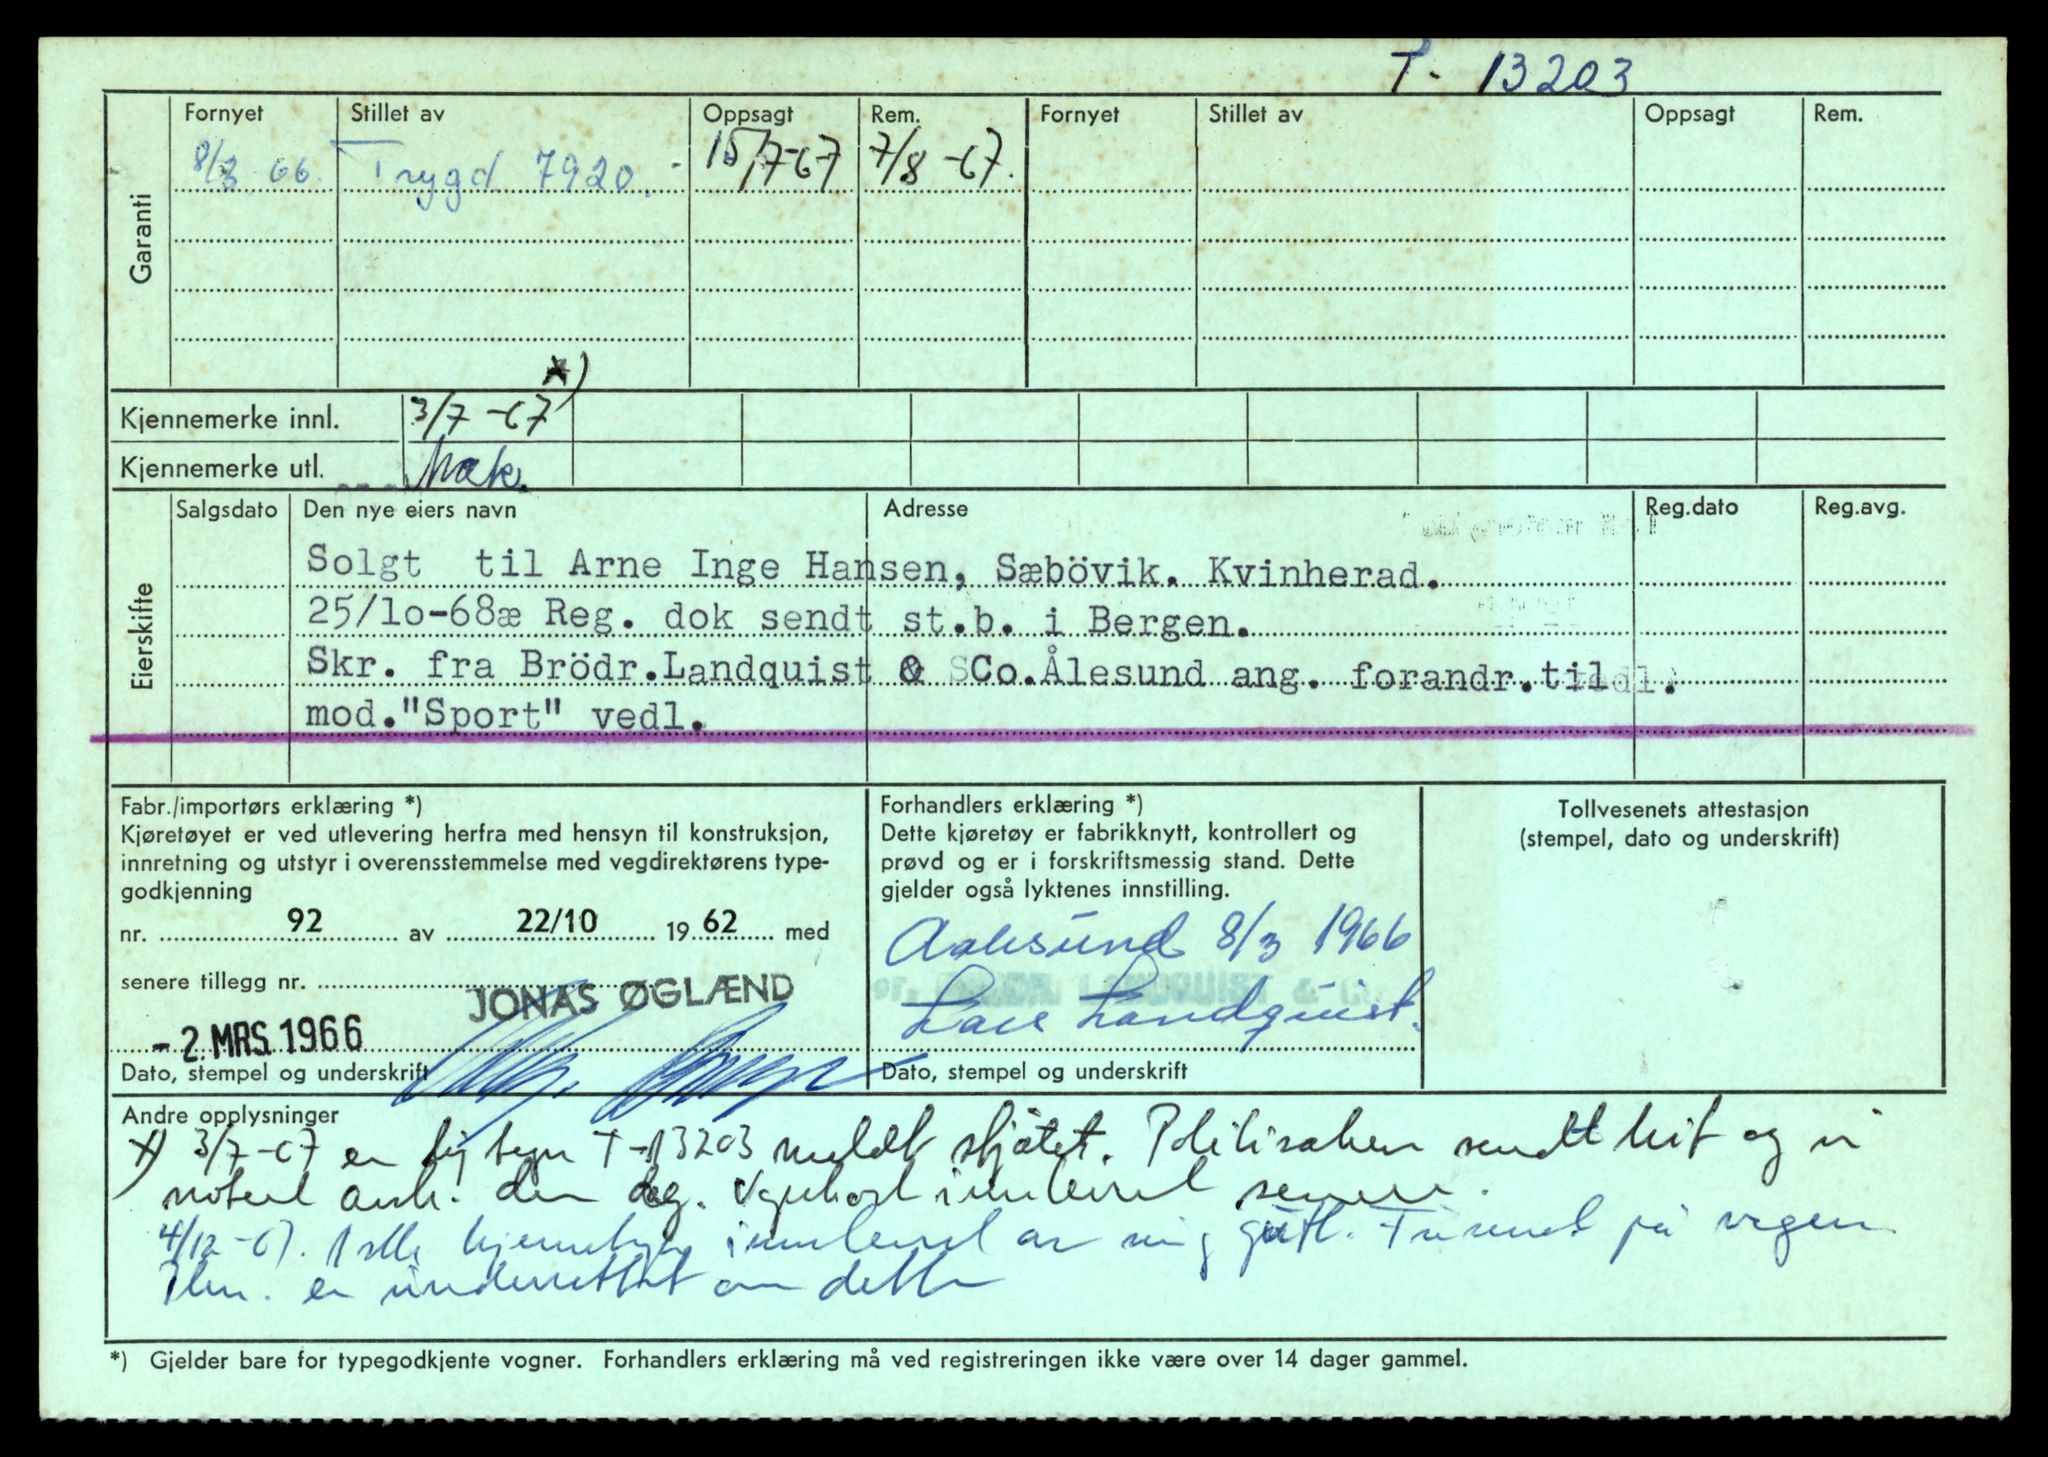 T- 13203
Fornyet Stillet av Oppsagt Rem. Fornyet Stillet av Oppsagt Rem.
8/3-66. Trygd 7920. - 15/7-67 7/8-67.
Garanti
*)
Kjennemerke innl. 3/7-67
Kjennemerke utl.
Salgsdato Den nye eiers navn Adresse Reg.dato Reg.avg.
Eierskifte
Solgt til Arne Inge Hansen, Sæbövik. Kvinherad.
25/lo-68æ Reg. dok sendt st.b. i Bergen.
Skr. fra Brödr.Landquist & SCo.Ålesund ang. forandr.til
mod."Sport" vedl.
Fabr./importørs erklæring *)
Kjøretøyet er ved utlevering herfra med hensyn til konstruksjon,
innretning og utstyr i overensstemmelse med vegdirektørens type-
godkjenning
nr. 92 av 22/10 1962 med
senere tillegg nr.
JONAS ØGLÆND
-2 MRS. 1966
Dato, stempel og underskrift
Forhandlers erklæring *)
Dette kjøretøy er fabrikknytt, kontrollert og
prøvd og er i forskriftsmessig stand. Dette
gjelder også lyktenes innstilling.
Aalesund 8/3 1966
LANDQUIST &
Lars Landquist.
Dato, stempel og underskrift
Tollvesenets attestasjon
(stempel, dato og underskrift)
Andre opplysninger
*) 3/7-67 er T-13203 meldt stjålet. Politisaken sendt hit og vi
notert den dag. innlevert senere.
4/12-67. innlevert av Funnet på vegen
er underrettet om dette
*) Gjelder bare for typegodkjente vogner. Forhandlers erklæring må ved registreringen ikke være over 14 dager gammel.